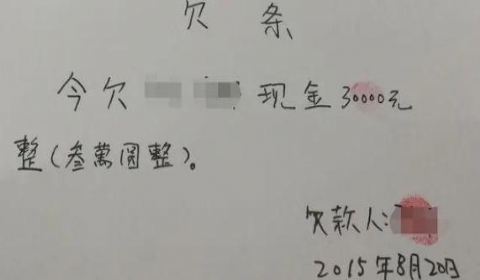 欠条
今欠 现金30000元
整(叁萬圆整)。
欠款人:
2015年8月20日